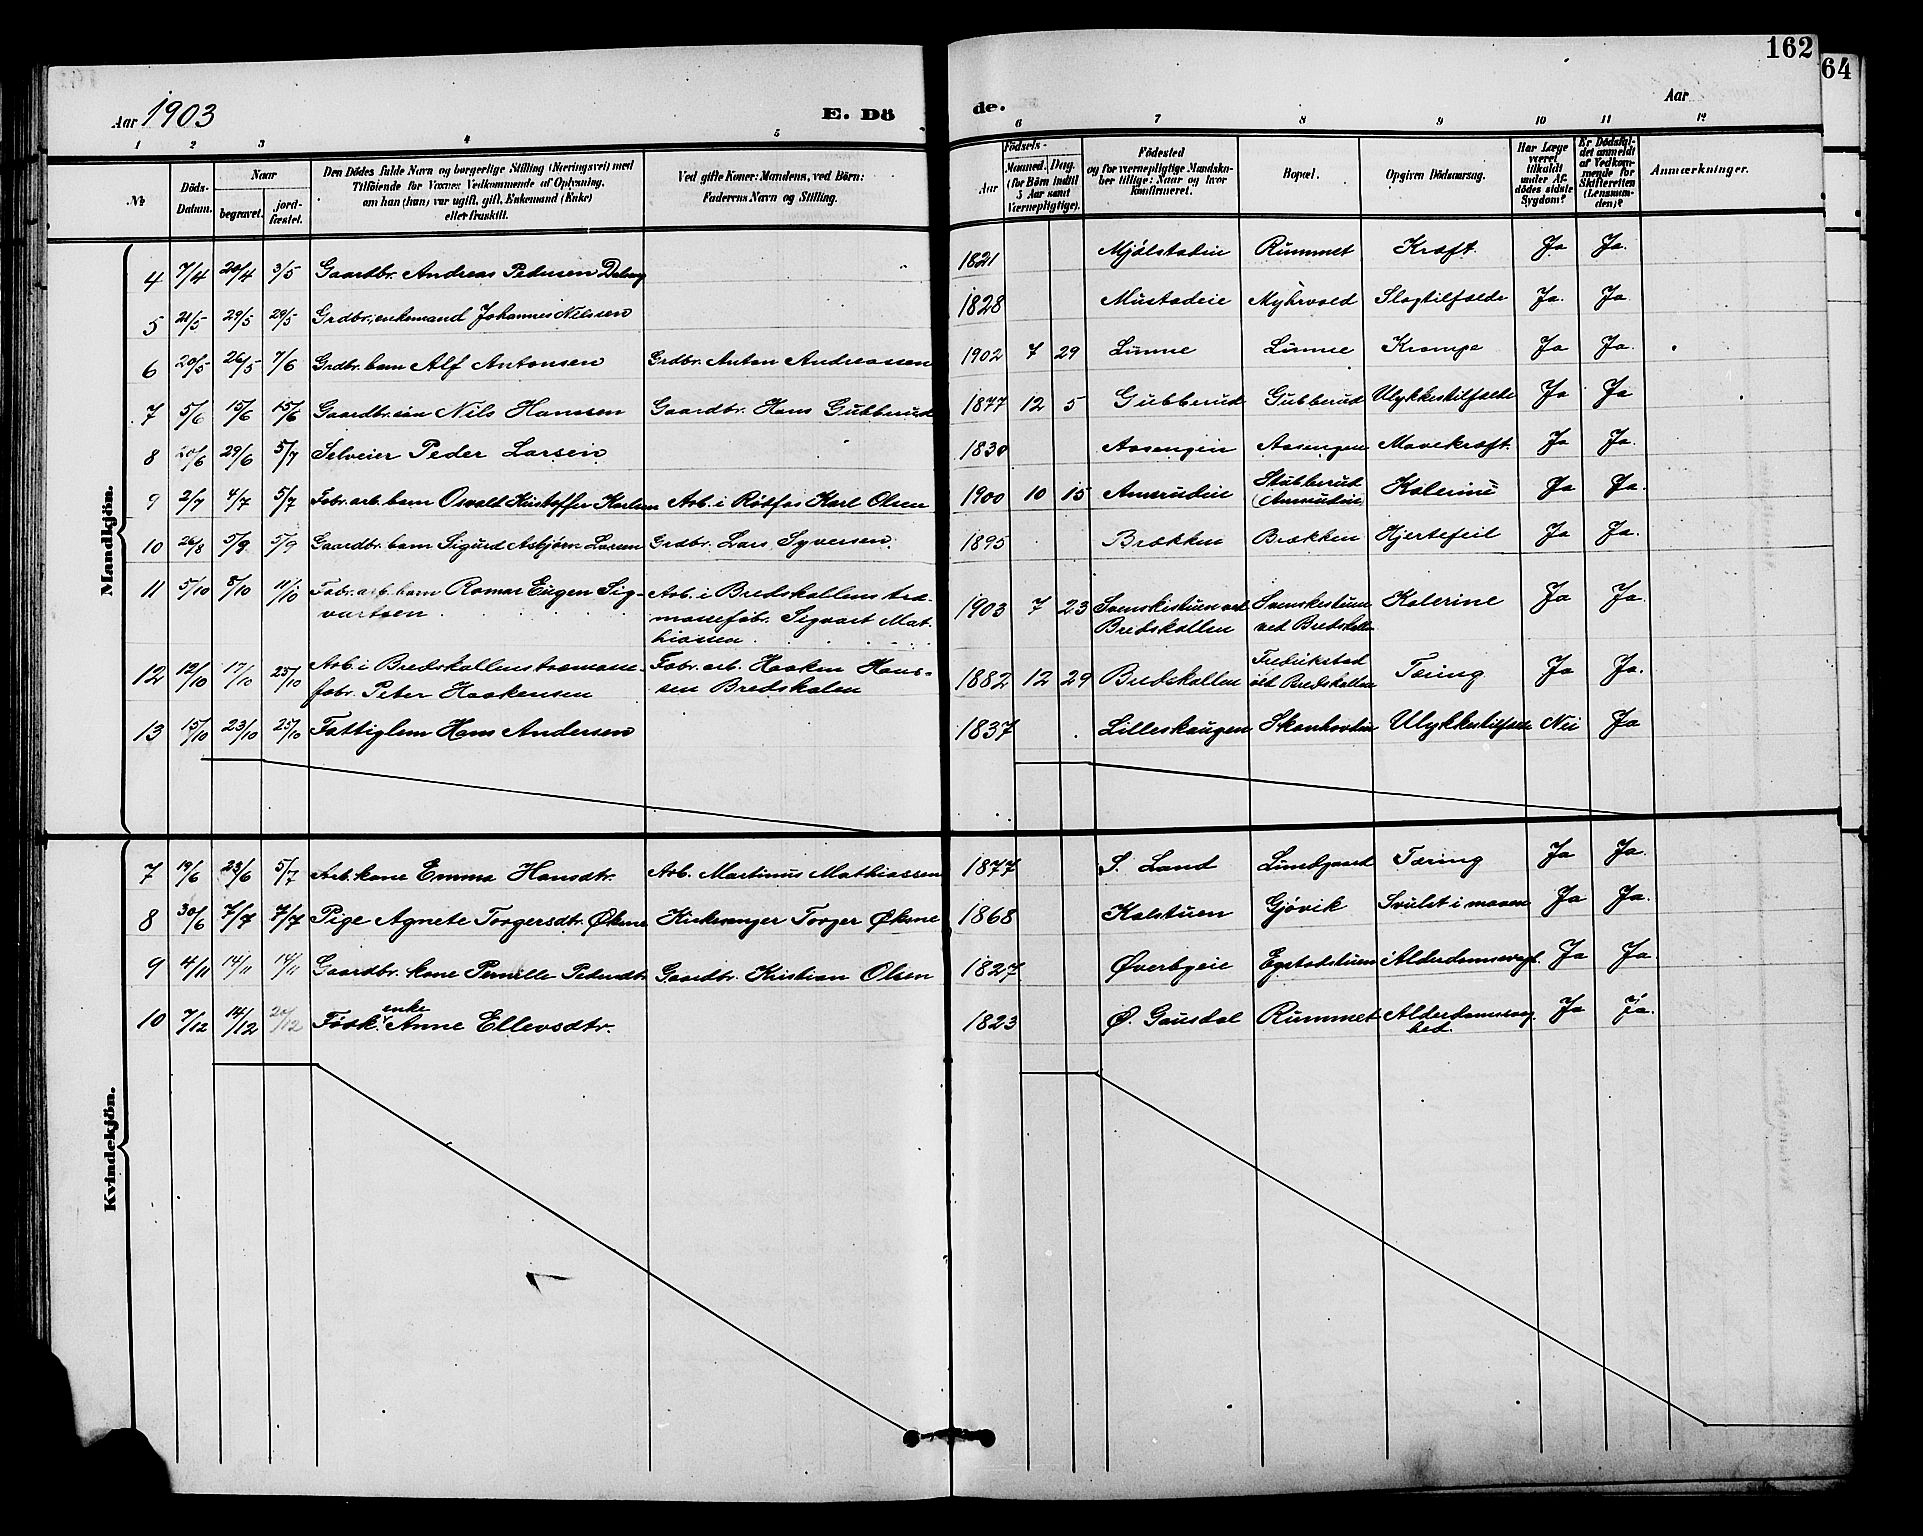 162
64
Aar 1903
E. Dö
de.
Aar
1 2 3 4 5 6 7 8 9 10 11 12
№
Döds-
Datum.
Naar
begravet.
jord-
fæstet.
Den Dödes fulde Navn og borgerlige Stilling (Næringsvei) med
Tilföiende for Voxnes Vedkommende af Oplysning,
om han (hun) var ugift, gift, Enkemand (Enke)
eller fraskilt.
Ved gifte Koner: Mandens, ved Börn:
Faderens Navn og Stilling.
Födsels-
Aar
Maaned. Dag.
(for Börn indtil
5 Aar samt
Værnepligtige).
Födested
og for værnepligtige Mandska-
ber tillige: Naar og hvor
konfirmeret.
Bopæl.
Opgiven Dödsaarsag.
Har Læge
været
tilkaldt
under Af-
dödes sidste
Sygdom?
Er Dödsfal-
det anmeldt
af Vedkom-
mende for
Skifteretten
(Lensman-
den)?
Anmærkninger.
Mandkjön.
4 7/4 20/4 3/5 Gaardbr. Andreas Pedersen Dalseg 1821 Mjölstadeie Rummet Kræft Ja Ja.
5 21/5 29/5 29/5 Grdbr., enkemand Johannes Nilssen 1828 Mustadeie Myhrvold Slagtilfælde Ja. Ja
6 20/5 26/5 7/6 Grdbr. barn Alf Antonsen Grdbr. Anton Andreassen 1902 7 29 Linne Linne Krampe Ja Ja.
7 5/6 15/6 15/6 Gaardbr. søn Nils Hanssen Gaardbr. Hans Gubberud 1877 12 5 Gubberud Gubberud Ulykkestilfælde Ja Ja
8 20/6 29/6 5/7 Selveier Peder Larsen 1830 Aasengen Aasengen Mavekræft. Ja Ja.
9 2/7 4/7 5/7 Fabr. arb. barn Osvald Kristoffer Karlsen Arb. i Rødfos Karl Olsen 1900 10 15 Amrudeie Stubberud
(Amrudeie) Kolerine Ja Ja.
10 26/8 5/9 5/9 Gaardbr. barn Sigurd Asbjørn Larsen Grdbr. Lars Syversen. 1895 Brækken Brækken Hjertefeil Ja Ja.
11 5/10 8/10 11/10 Fabr. arb. barn Ramar Eugen Sig- Arb. i Bredskallens træ-
vartsen. massefabr. Sigvart Mat-
hiassen. 1903 7 23 Svenskestuen ved Svenskestuen Kolerine Ja Ja.
Bredskallen ved Bredskallen
12 12/10 17/10 25/10 Arb. i Bredskallens træmasse- Fabr. arb. Haaken Hans-
fabr. Peter Haakensen sen Bredskalen 1882 12 29 Bredskallen Fredrikstad
ved Bredskallen Tæring Ja Ja.
13 15/10 23/10 25/10 Fattiglem Hans Andersen 1837 Lilleskaugen Ulykkestilfælde Nei Ja
Kvindekjön.
7 19/6 23/6 5/7 Arb. kone Emma Hansdtr. Arb. Martinus Mathiassen 1877 S. Land Lundgaard Tæring Ja Ja.
8 30/6 7/7 7/7 Pige Agnete Torgersdtr. Øksne Kirkesanger Torger Øksne 1868 Kalstuen Gjøvik Svulst i maven Ja Ja.
9 4/11 14/11 14/11 Gaardbr. kone Pernille Pedersdtr. Gaardbr. Kristian Olsen 1827 Øverbyeie Egstadstuen Alderdomssvagh. Ja Ja.
10 7/12 14/12 20/12 Føsk. enke Anne Ellevsdtr. 1823 Ø. Gausdal Rummet Alderdomssvag-
hed. Ja Ja.